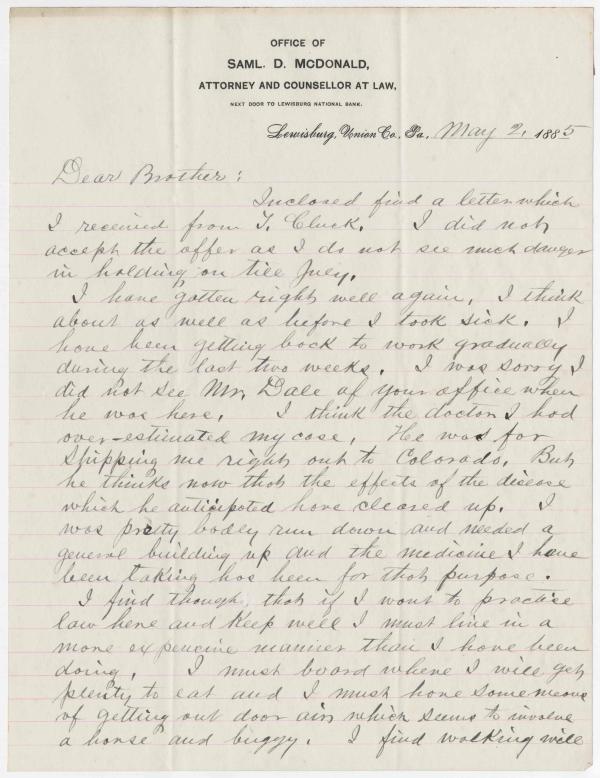 OFFICE OF
SAML. D. McDONALD,
ATTORNEY AND COUNSELLOR AT LAW,
NEXT DOOR TO LEWISBURG NATIONAL BANK.
Lewisburg, Union Co., Pa., May 2, 1885
Dear Brother:
Inclosed find a letter which
I received from T. Cluck. I did not
accept the offer as I do not see much danger
in holding on till July.
I have gotten right well again, I think
about as well as before I took sick. I
have been getting back to work gradually
during the last two weeks. I was sorry I
did not see Mr. Dale of your office when
he was here. I think the doctor I had
over-estimated my case. He was for
shipping me right out to Colorado. But
he thinks now that the effects of the disease
which he anticipated have cleared up. I
was pretty badly run down and needed a
general building up and the medicine I have
been taking has been for that purpose.
I find though, that if I want to practise
law here and keep well I must live in a
more expencive manner than I have been
doing. I must board where I will get
plenty to eat and I must have some means
of getting out door air which seems to involve
a horse and buggy. I find walking will